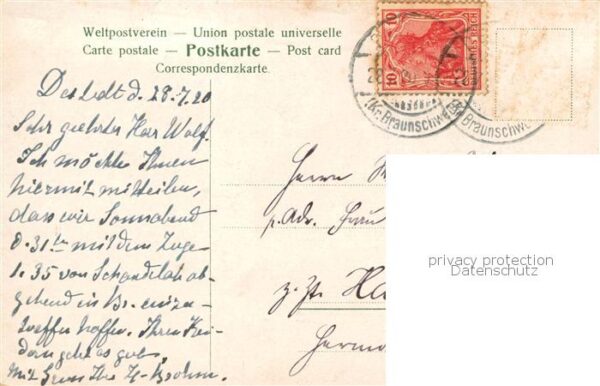 Weltpostverein — Union postale universelle
Carte postale — Postkarte — Post card
Correspondenzkarte.
10 10
DEUTSCHES REICH
(Kr. Braunschweig)
(Kr. Braunschwe
d. 28.7.20
Sehr geehrter Herr Wolf.
Ich möchte Ihnen
hiermit mitteilen,
dass wir Sonnabend
d. 31ten mit dem Zuge
1.35 von Schandelah ab-
gehend in Br. einzu-
treffen hoffen. Ihren Kin-
dern geht es gut.
Mit Gruss Ihr
Herrn
p. Adr. Frau
z. Zt. Ha
privacy protection
Datenschutz